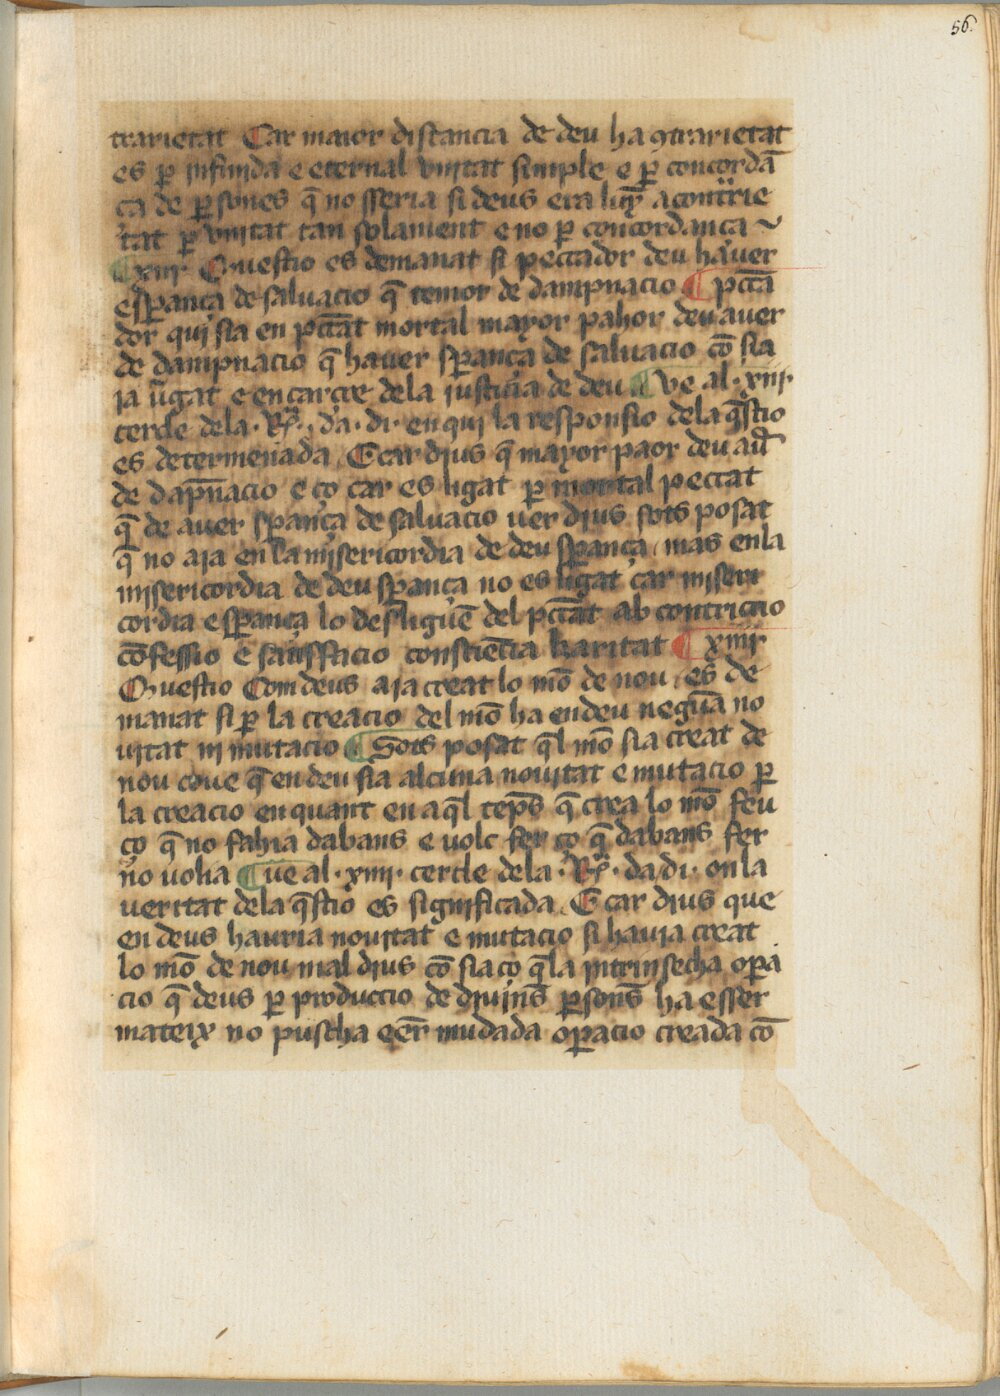 56.
trarietat Car maior distancia de deu ha ꝯtrarietat
es ꝑ infinida e eternal vnitat simple e ꝑ concordā
ça de ꝑsones q̄ no sseria si deus era luỹ a contrarie
tat ꝑ vnitat tan solament e no ꝑ concordança
¶ xiij Questio es demanat si peccador deu hauer
esꝑança de saluacio q̄ temor de dampnacio ¶ pcca
dor qui sia en pccāt mortal mayor pahor deu auer
de dampnacio q̄ hauer sꝑança de saluacio cō sia
ia iūgat e en carçre de la iusticia de deu ¶ Ve al · xiij ·
cercle de la · R͠e · da · di · en qui la responsio de la q̄stio
es determenada E car dius q̄ mayor paor deu au͛
de dap̄nacio e ço car es ligat ꝑ mortal peccat
q̄ de auer sꝑança de saluacio uer dius sots posat
q̄ no aia en la misericordia de deu sꝑança mas en la
misericordia de deu sꝑança no es ligat car miseri
cordia e sꝑança lo desliguē del pccāt ab contriccio
cōfessio e satisffacio consciēcia karitat ¶ xiiij
Questio Com deus aia creat lo mō de nou es de
manat si ꝑ la creacio del mō ha en deu neguna no
uitat ni mutacio ¶ Sots posat q̄l mō sia creat de
nou coue q̄ en deu sia alcuna nouitat e mutacio ꝑ
la creacio en quant en aq̄l tēps q̄ crea lo mō feu
ço q̄ no fahia dabans e volc fer ço q̄ dabans fer
no volia ¶ ve al · xiiij · cercle de la · R͠e · da di · on la
veritat de la q̄stio es significada E car dius que
en deus hauria nouitat e mutacio si hauia creat
lo mō de nou mal dius cō sia ço q̄ la intrinsecha oꝑa
cio q̄ deus ꝑ produccio de diuīns ꝑsons ha e sser
mateix no puscha eēr mudada oꝑacio creada cō